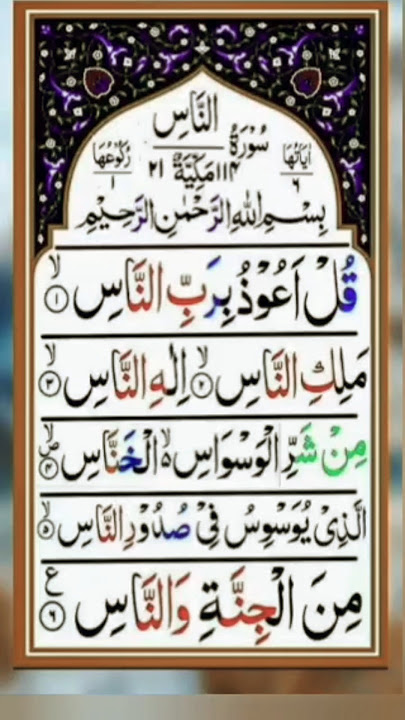 النَّاسِ
سُوْرَةُ ١١٤ مَكِّيَّةٌ ٢١
اٰيَاتُهَا ٦
رُكُوْعُهَا ١
بِسْمِ اللهِ الرَّحْمٰنِ الرَّحِيْمِ
قُلْ اَعُوْذُ بِرَبِّ النَّاسِ ۙ﴿۱﴾
مَلِكِ النَّاسِ ۙ﴿۲﴾ اِلٰهِ النَّاسِ ۙ﴿۳﴾
مِنْ شَرِّ الْوَسْوَاسِ ۙ۬ الْخَنَّاسِ ۪ۙ﴿۴﴾
الَّذِیْ یُوَسْوِسُ فِیْ صُدُوْرِ النَّاسِ ۙ﴿۵﴾
مِنَ الْجِنَّةِ وَالنَّاسِ ﴿۶﴾ ع